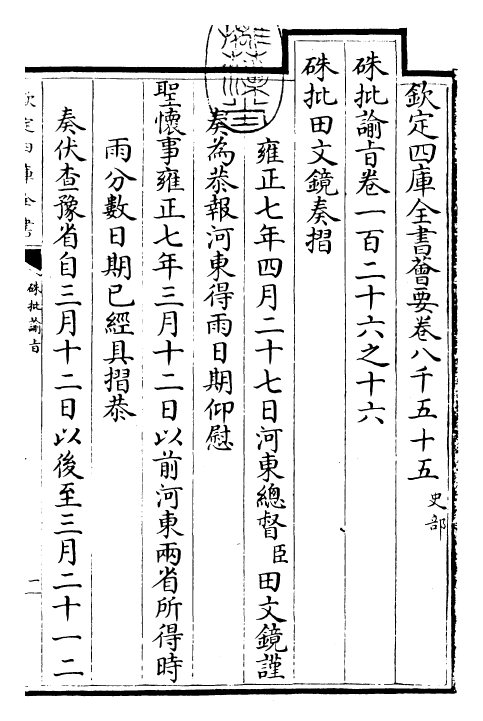 欽定四庫全書薈要卷八千五十五 史部
硃批諭旨卷一百二十六之十六
硃批田文鏡奏摺
雍正七年四月二十七日河東總督臣田文鏡謹
奏為恭報河東得雨日期仰慰
聖懷事雍正七年三月十二日以前河東兩省所得時
雨分數日期已經具摺恭
奏伏查豫省自三月十二日以後至三月二十一二
欽定四庫全書
硃批諭旨
一